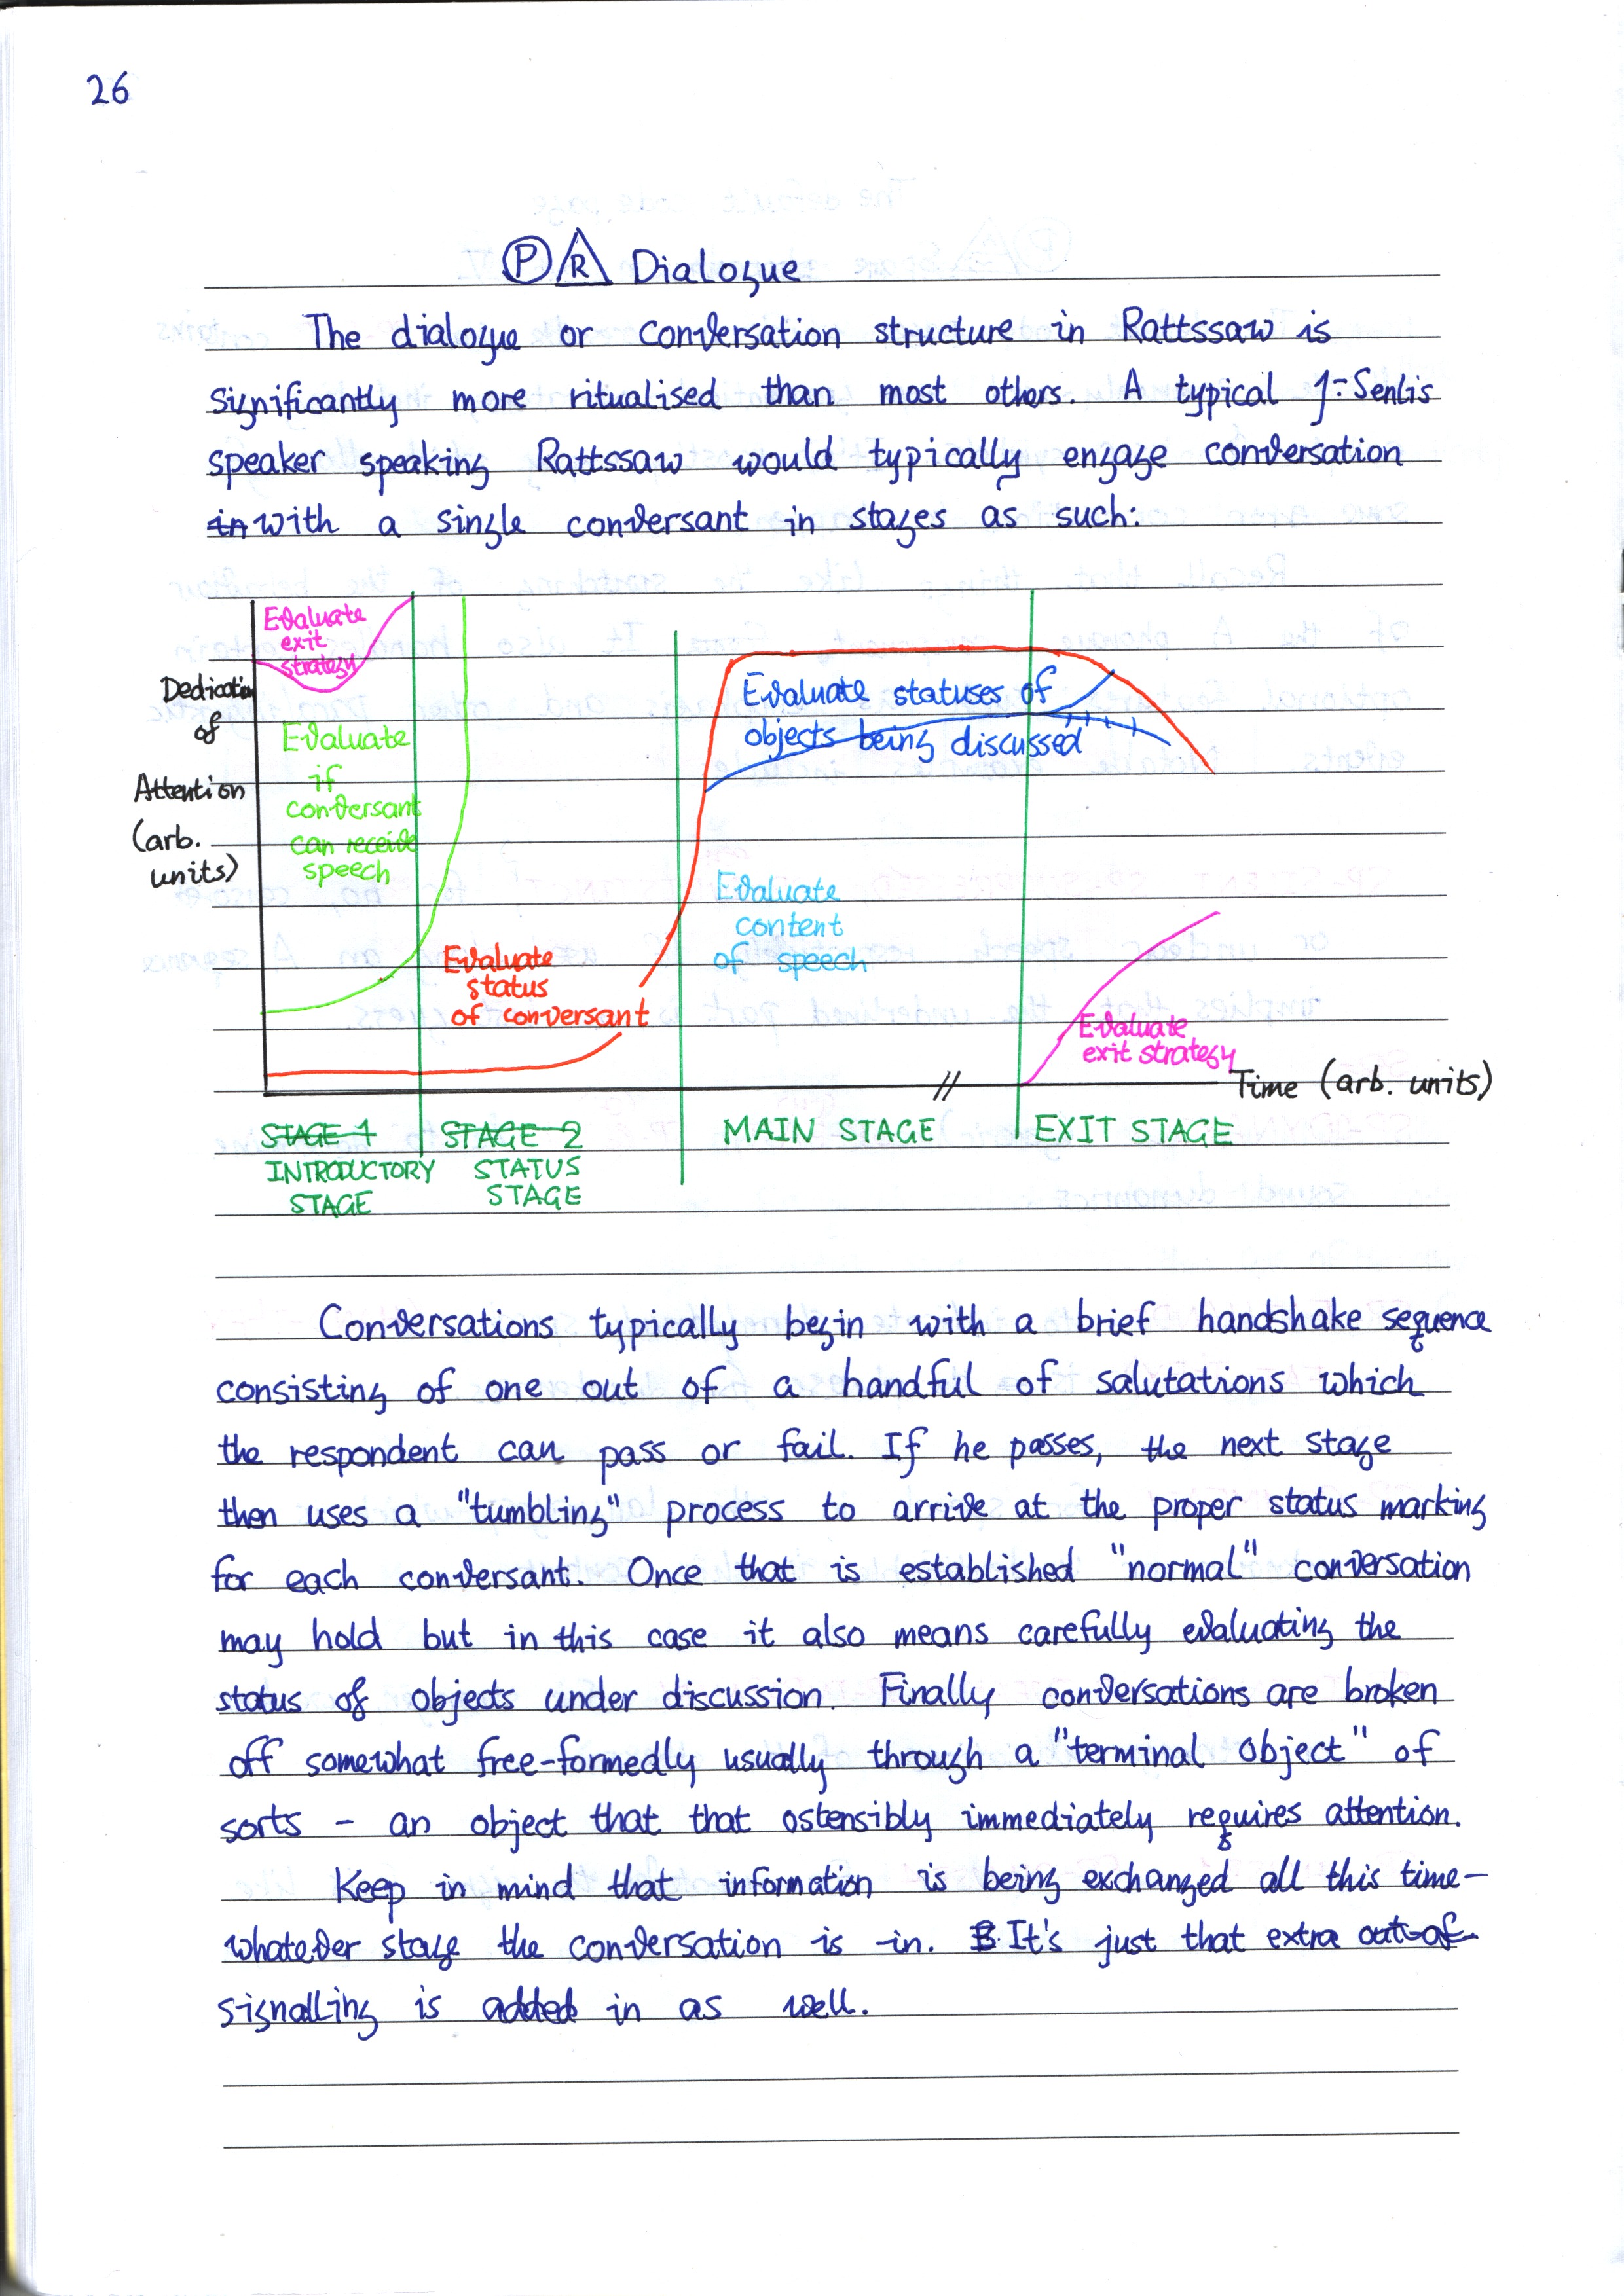 26
P R Dialogue
The dialogue or conversation structure in Rattssaw is
significantly more ritualised than most others. A typical J=Senlis
speaker speaking Rattssaw would typically engage conversation
in with a single conversant in stages as such:
Evaluate
exit
strategy
Dedication
of
Attention
(arb.
units)
Evaluate
if
conversant
can receive
speech
Evaluate
status
of conversant
Evaluate statuses of
objects being discussed
Evaluate
content
of speech
Evaluate
exit strategy
Time (arb. units)
STAGE 1
INTRODUCTORY
STAGE
STAGE 2
STATUS
STAGE
MAIN STAGE
EXIT STAGE
Conversations typically begin with a brief handshake sequence
consisting of one out of a handful of salutations which
the respondent can pass or fail. If he passes, the next stage
then uses a "tumbling" process to arrive at the proper status marking
for each conversant. Once that is established "normal" conversation
may hold but in this case it also means carefully evaluating the
status of objects under discussion. Finally conversations are broken
off somewhat free-formedly usually through a "terminal object" of
sorts – an object that that ostensibly immediately requires attention.
Keep in mind that information is being exchanged all this time –
whatever stage the conversation is in. B It's just that extra out-of-
signalling is added in as well.